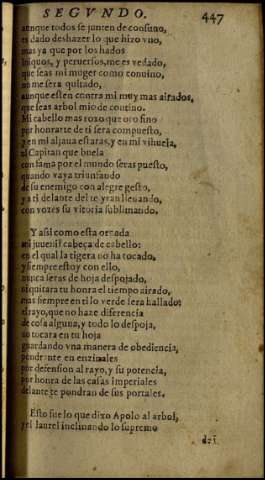 SEGVNDO. 447
aunque todos se junten de consuno,
es dado deshazer lo que hizo vno,
mas ya que por los hados
iniquos, y peruersos, me es vedado,
que seas mi muger como conuino,
no me sera quitado,
aunque esten contra mi muy mas airados,
que seas arbol mio de contino.
Mi cabello mas roxo que oro fino
por honrarte de ti sera compuesto,
y en mi aljaua estaras, y en mi vihuela,
al Capitan que buela
con fama por el mundo seras puesto,
quando vaya triunfando
de su enemigo con alegre gesto,
y a ti delante del te yran lleuando,
con vozes su vitoria sublimando.
Y asi como esta ornada
mi juuenil cabeça de cabello:
en el qual la tigera no ha tocado,
y siempre estoy con ello,
nunca seras de hoja despojado,
ni quitara tu honra el tiempo airado,
mas siempre en ti lo verde sera hallado:
el rayo, que no haze diferencia
de cosa alguna, y todo lo despoja,
no tocara en tu hoja
guardando vna manera de obediencia,
pondrante en enzimales
por defension al rayo, y su potencia,
por honra de las casas imperiales
delante te pondran de sus portales.
Esto fue lo que dixo Apolo al arbol,
y el laurel inclinando lo supremo
del